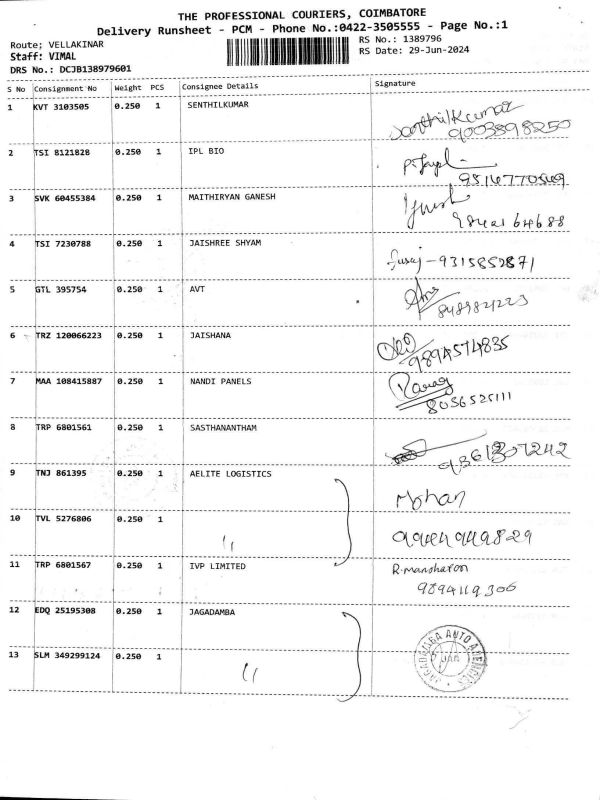 THE PROFESSIONAL COURIERS, COIMBATORE
Delivery Runsheet - PCM - Phone No.:0422-3505555 - Page No.:1
Route; VELLAKINAR
RS No.: 1389796
Staff: VIMAL
RS Date: 29-Jun-2024
DRS No.: DCJB138979601
S No Consignment No Weight PCS Consignee Details Signature
1 KVT 3103505 0.250 1 SENTHILKUMAR Senthilkumar
9003898250
2 TSI 8121828 0.250 1 IPL BIO
9514770549
3 SVK 60455384 0.250 1 MAITHIRYAN GANESH
9840164688
4 TSI 7230788 0.250 1 JAISHREE SHYAM Suraj - 9315852871
5 GTL 395754 0.250 1 AVT
8489821223
6 TRZ 120066223 0.250 1 JAISHANA
9894574835
7 MAA 108415887 0.250 1 NANDI PANELS
8056525111
8 TRP 6801561 0.250 1 SASTHANANTHAM
9361307242
9 TNJ 861395 0.250 1 AELITE LOGISTICS Mohan
10 TVL 5276806 0.250 1 〃 9944949829
11 TRP 6801567 0.250 1 IVP LIMITED R.manoharan
9894119306
12 EDQ 25195308 0.250 1 JAGADAMBA
JAGADAMBA AUTO AGENCIES
13 SLM 349299124 0.250 1 〃